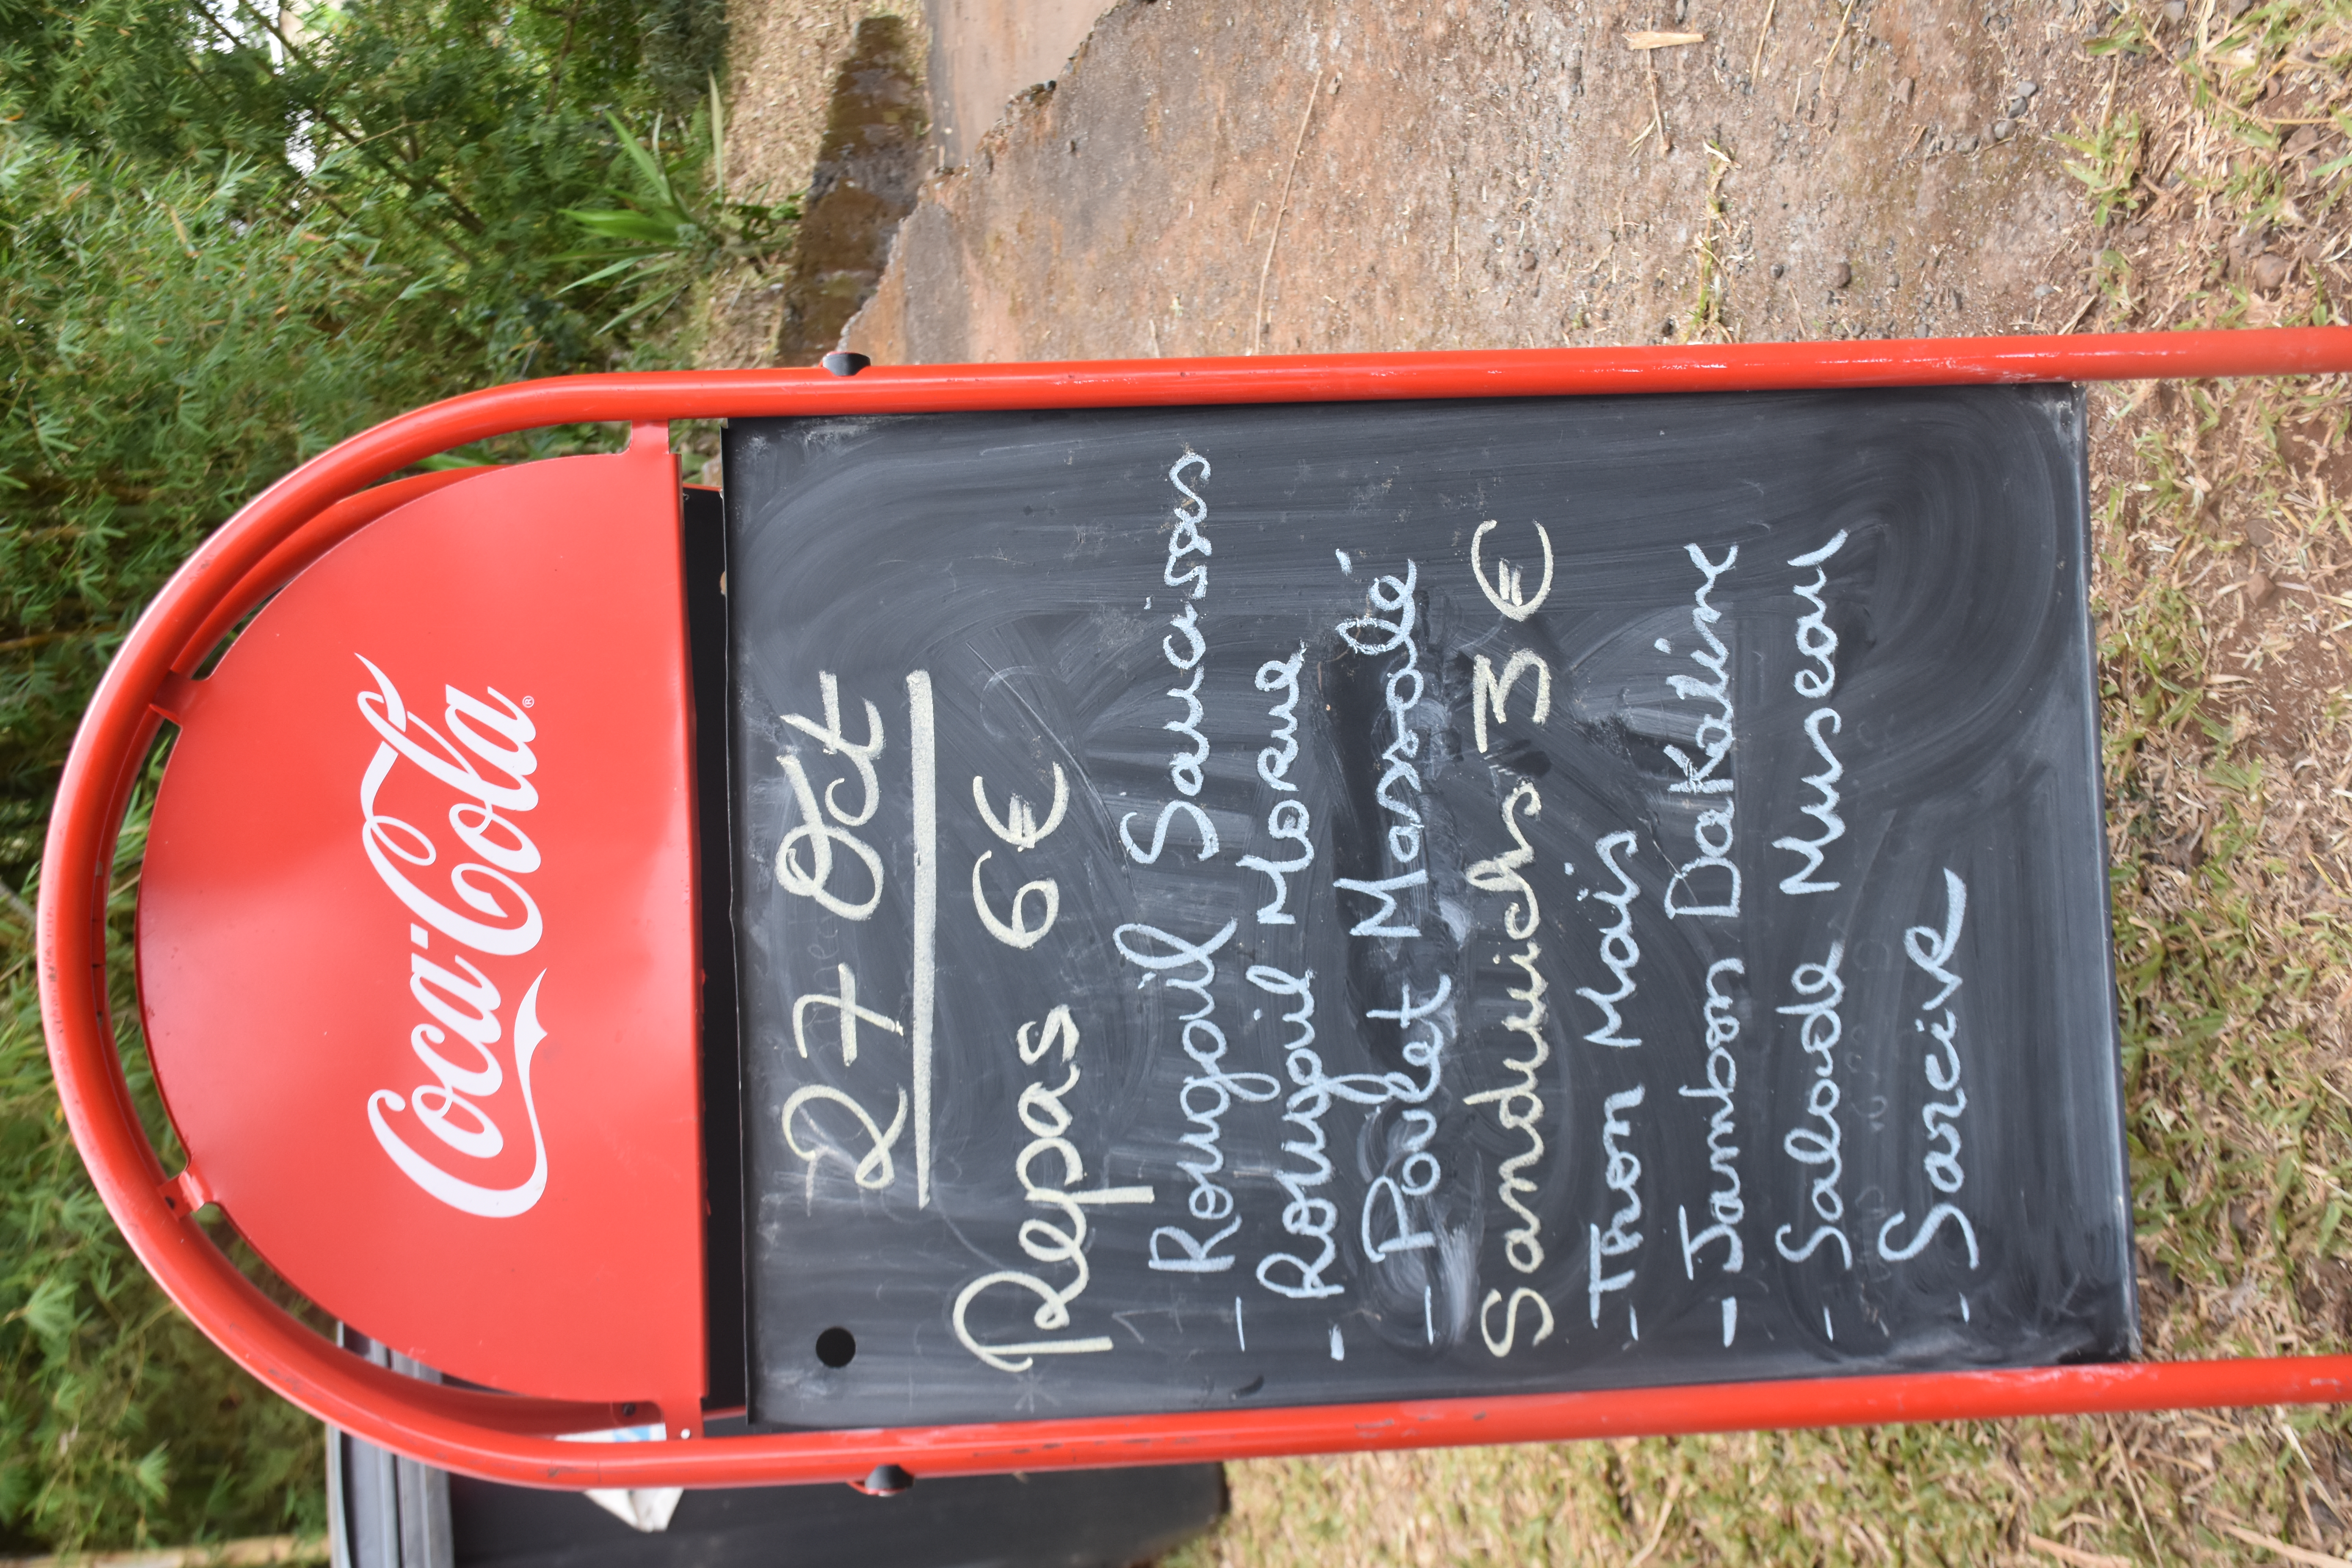 Coca-Cola®
27 Oct
Repas 6€
- Rougail Saucisses
- Rougail Morue
- Poulet Massalé
Sandwichs 3€
- Thon Maïs
- Jambon Dakatine
- Salade Museau
- Sarcive